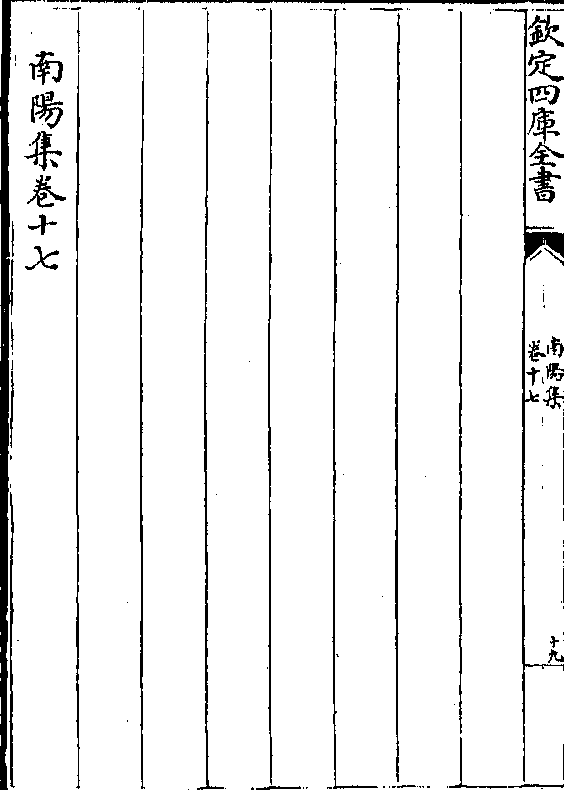 欽定四庫全書
南陽集
卷十七
十九
南陽集卷十七